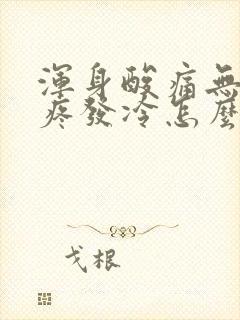 渾身酸痛無
疼發冷怎麼
戈根